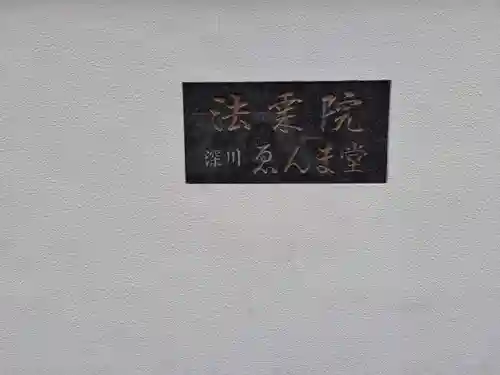 法乗院
深川 ゑんま堂